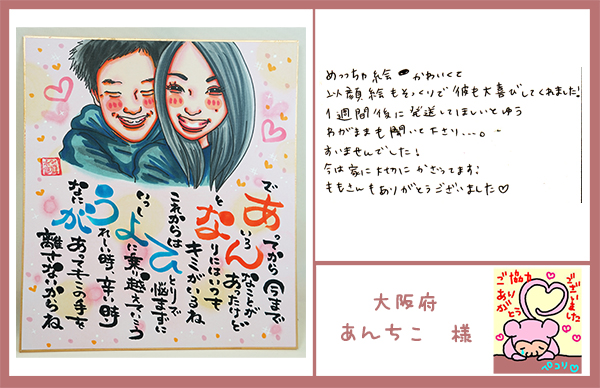 であってから今まで
いろんなことが
あったけど
となりにはいつも
キミがいるね
これからは
ひとりで悩まずに
いっしょに乗り越えていこう
うれしい時、辛い時
なにがあってもこの手を
離さないからね
めっちゃ絵かわいくて
以顔絵もそっくりで彼も大喜びしてくれました!
1週間後に発送してほしいとゆう
わがままも聞いて下さり...。
すいませんでした!
今は家に大切にかざってます!
ももさんもありがとうございました♡
大阪府
あんちこ 様
ご協力
ありがとう
ございました
ペコリ♡